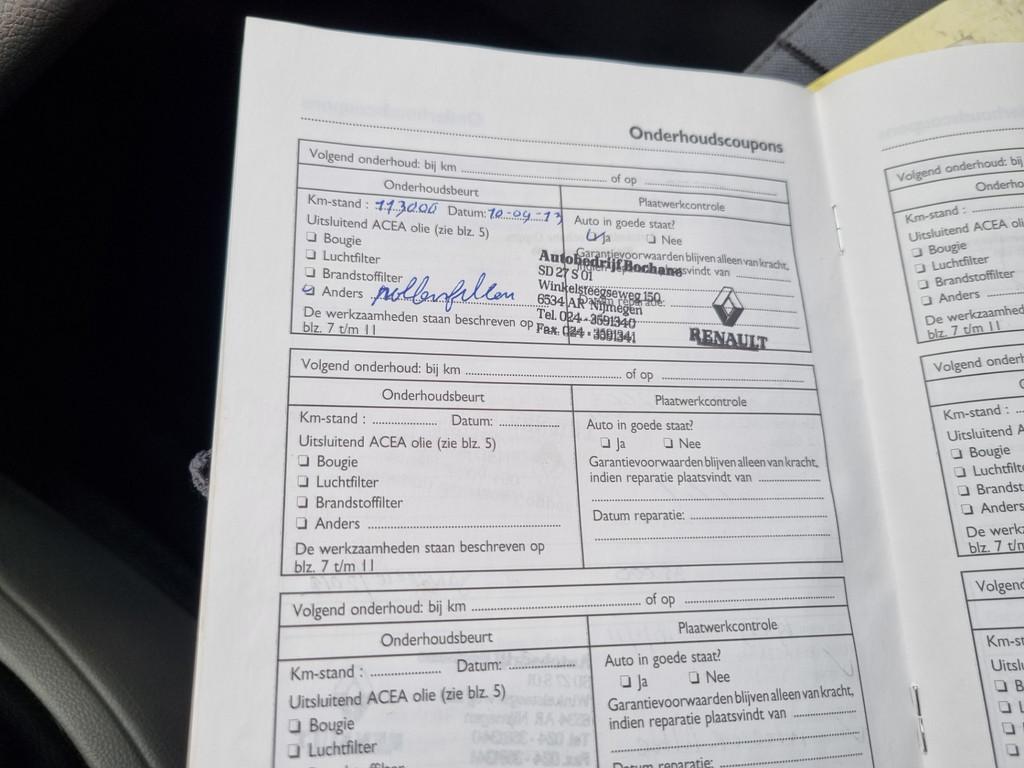 Onderhoudscoupons
Volgend onderhoud: bij km of op
Onderhoudsbeurt
Plaatwerkcontrole
Km-stand : 113000 Datum: 10-09-13
Auto in goede staat?
Ja Nee
Uitsluitend ACEA olie (zie blz. 5)
Bougie
Luchtfilter
Brandstoffilter
Anders pollenfilter
De werkzaamheden staan beschreven op
blz. 7 t/m 11
Garantievoorwaarden blijven alleen van kracht,
indien reparatie plaatsvindt van
Datum reparatie:
Autobedrijf Bochane
SD 27 S 01
Winkelsteegseweg 150
6534 AR Nijmegen
Tel. 024 - 3591340
Fax. 024 - 3591341
RENAULT
Volgend onderhoud: bij km of op
Onderhoudsbeurt
Plaatwerkcontrole
Km-stand : Datum:
Uitsluitend ACEA olie (zie blz. 5)
Bougie
Luchtfilter
Brandstoffilter
Anders
De werkzaamheden staan beschreven op
blz. 7 t/m 11
Auto in goede staat?
Ja Nee
Garantievoorwaarden blijven alleen van kracht,
indien reparatie plaatsvindt van
Datum reparatie:
Volgend onderhoud: bij km of op
Onderhoudsbeurt
Plaatwerkcontrole
Km-stand : Datum:
Uitsluitend ACEA olie (zie blz. 5)
Bougie
Luchtfilter
Auto in goede staat?
Ja Nee
Garantievoorwaarden blijven alleen van kracht,
indien reparatie plaatsvindt van
Datum reparatie:
Volgend onderhoud: bij
Km-stand :
Uitsluitend ACEA oli
Bougie
Luchtfilter
Brandstoffilter
Anders
De werkzaamhed
blz. 7 t/m 11
Volgend onderh
Km-stand :
Uitsluitend A
Bougie
Luchtfilt
Brandst
Anders
De werkz
blz. 7 t/m
Volgend
Km-st
Uitslu
B
L